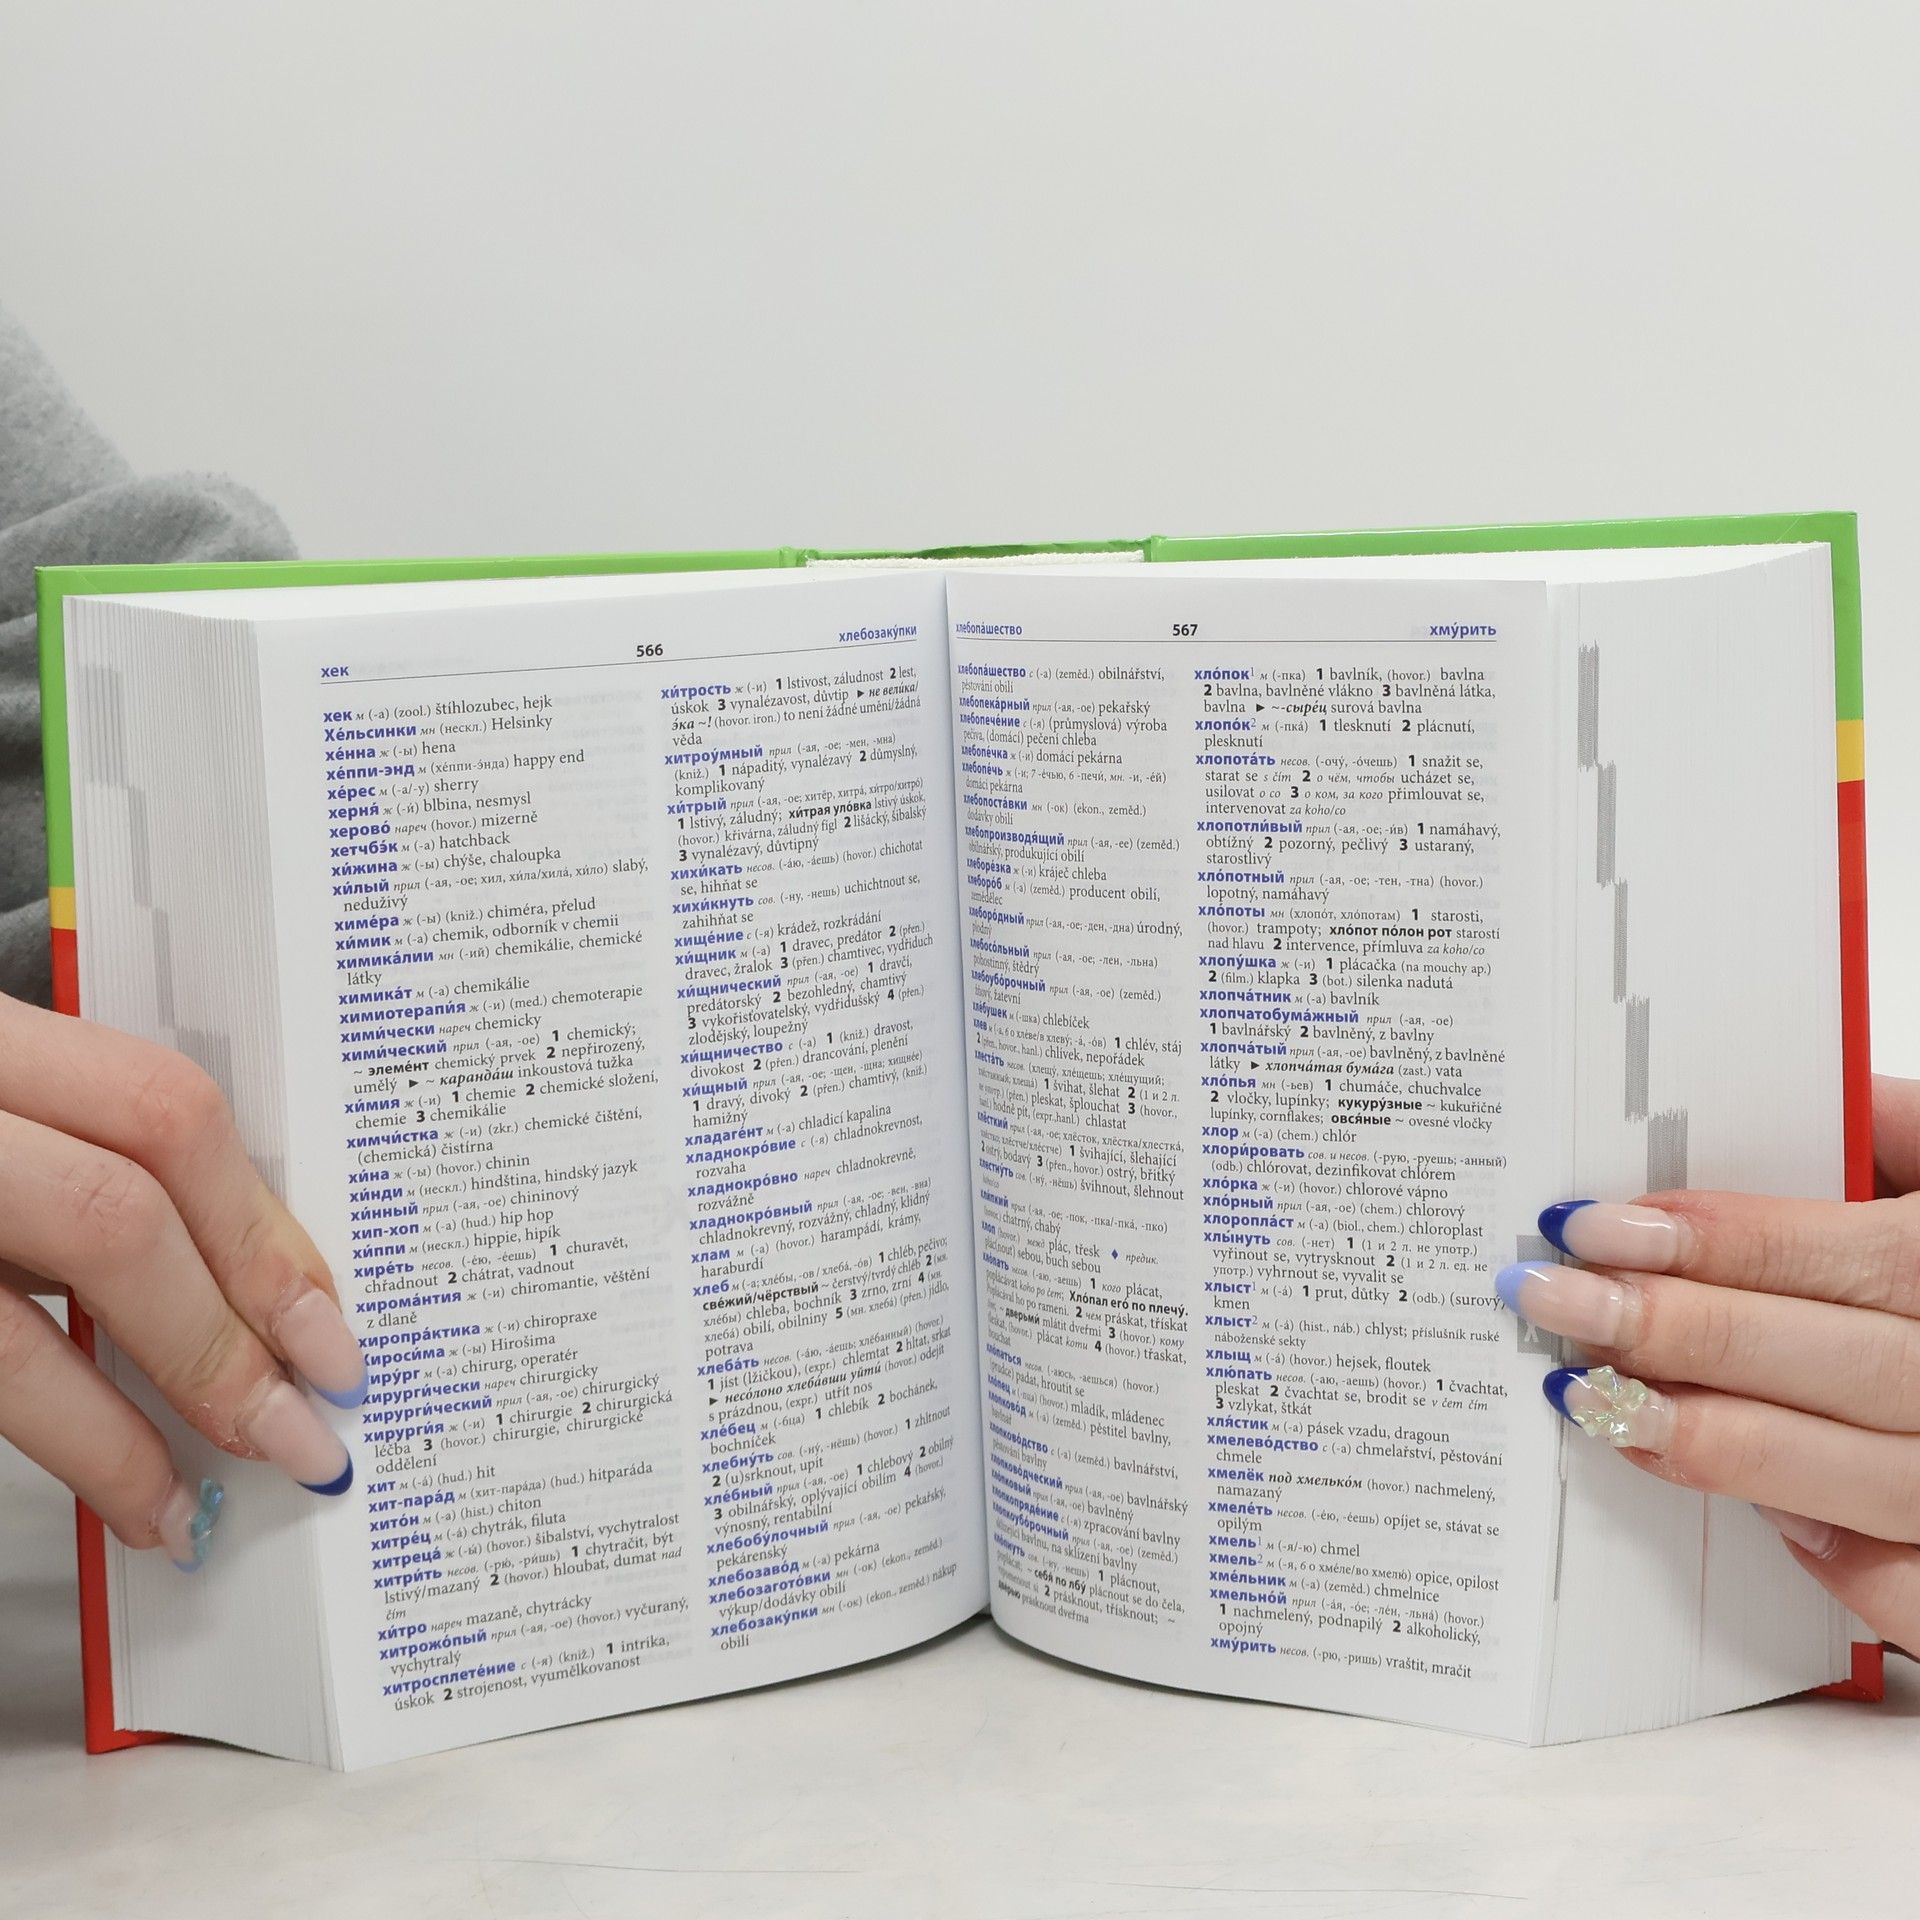 хек
566
хлебозаку́пки
хек м (-а) (zool.) štíhlozubec, hejk
Хе́льсинки мн (нескл.) Helsinky
хе́нна ж (-ы) hena
хе́ппи-энд м (хе́ппи-э́нда) happy end
хе́рес м (-а/-у) sherry
херня́ ж (-и́) blbina, nesmysl
херово́ нареч (hovor.) mizerně
хетчбэ́к м (-а) hatchback
хи́жина ж (-ы) chýše, chaloupka
хи́лый прил (-ая, -ое; хил, хи́ла/хила́, хи́ло) slabý,
neduživý
химе́ра ж (-ы) (kniž.) chiméra, přelud
хи́мик м (-а) chemik, odborník v chemii
химика́лии мн (-ий) chemikálie, chemické
látky
химика́т м (-а) chemikálie
химиотерапи́я ж (-и) (med.) chemoterapie
хими́чески нареч chemicky
хими́ческий прил (-ая, -ое) 1 chemický;
~ элеме́нт chemický prvek 2 nepřirozený,
umělý ► ~ каранда́ш inkoustová tužka
хи́мия ж (-и) 1 chemie 2 chemické složení,
chemie 3 chemikálie
химчи́стка ж (-и) (zkr.) chemické čištění,
(chemická) čistírna
хи́на ж (-ы) (hovor.) chinin
хи́нди м (нескл.) hindština, hindský jazyk
хи́нный прил (-ая, -ое) chininový
хип-хоп м (-а) (hud.) hip hop
хи́ппи м (нескл.) hippie, hipík
хире́ть несов. (-е́ю, -е́ешь) 1 churavět,
chřadnout 2 chátrat, vadnout
хирома́нтия ж (-и) chiromantie, věštění
z dlaně
хиропра́ктика ж (-и) chiropraxe
Хироси́ма ж (-ы) Hirošima
хиру́рг м (-а) chirurg, operatér
хирурги́чески нареч chirurgicky
хирурги́ческий прил (-ая, -ое) chirurgický
хирурги́я ж (-и) 1 chirurgie 2 chirurgická
léčba 3 (hovor.) chirurgie, chirurgické
oddělení
хит м (-а́) (hud.) hit
хит-пара́д м (хит-пара́да) (hud.) hitparáda
хито́н м (-а) (hist.) chiton
хитре́ц м (-а́) chytrák, filuta
хитреца́ ж (-ы́) (hovor.) šibalství, vychytralost
хитри́ть несов. (-рю́, -ри́шь) 1 chytračit, být
lstivý/mazaný 2 (hovor.) hloubat, dumat nad
čím
хи́тро нареч mazaně, chytrácky
хитрожо́пый прил (-ая, -ое) (hovor.) vyčuraný,
vychytralý
хитросплете́ние с (-я) (kniž.) 1 intrika,
úskok 2 strojenost, vyumělkovanost
хи́трость ж (-и) 1 lstivost, záludnost 2 lest,
úskok 3 vynalézavost, důvtip ► не вели́ка/
э́ка ~! (hovor. iron.) to není žádné umění/žádná
věda
хитроу́мный прил (-ая, -ое; -мен, -мна)
(kniž.) 1 nápaditý, vynalézavý 2 důmyslný,
komplikovaný
хи́трый прил (-ая, -ое; хитёр, хитра́, хи́тро/хитро́)
1 lstivý, záludný; хи́трая уло́вка lstivý úskok,
(hovor.) křivárna, záludný fígl 2 lišácký, šibalský
3 vynalézavý, důvtipný
хихи́кать несов. (-аю, -аешь) (hovor.) chichotat
se, hihňat se
хихи́кнуть сов. (-ну, -нешь) uchichtnout se,
zahihňat se
хище́ние с (-я) krádež, rozkrádání
хи́щник м (-а) 1 dravec, predátor 2 (přen.)
dravec, žralok 3 (přen.) chamtivec, vydřiduch
хи́щнический прил (-ая, -ое) 1 dravčí,
predátorský 2 bezohledný, chamtivý
3 vykořisťovatelský, vydřidušský 4 (přen.)
zlodějský, loupežný
хи́щничество с (-а) 1 (kniž.) dravost,
divokost 2 (přen.) drancování, plenění
хи́щный прил (-ая, -ое; -щен, -щна; хищне́е)
1 dravý, divoký 2 (přen.) chamtivý, (kniž.)
hamižný
хладаге́нт м (-а) chladicí kapalina
хладнокро́вие с (-я) chladnokrevnost,
rozvaha
хладнокро́вно нареч chladnokrevně,
rozvážně
хладнокро́вный прил (-ая, -ое; -вен, -вна)
chladnokrevný, rozvážný, chladný, klidný
хлам м (-а) (hovor.) harampádí, krámy,
haraburdí
хлеб м (-а; хле́бы, -ов / хлеба́, -о́в) 1 chléb, pečivo;
све́жий/чёрствый ~ čerstvý/tvrdý chléb 2 (мн.
хле́бы) chleba, bochník 3 zrno, zrní 4 (мн.
хлеба́) obilí, obilniny 5 (мн. хлеба́) (přen.) jídlo,
potrava
хлеба́ть несов. (-а́ю, -а́ешь; хлёбанный) (hovor.)
1 jíst (lžičkou), (expr.) chlemtat 2 hltat, srkat
► несо́лоно хлеба́вши уйти́ (hovor.) odejít
s prázdnou, (expr.) utřít nos
хле́бец м (-бца) 1 chlebík 2 bochánek,
bochníček
хлебну́ть сов. (-ну́, -нёшь) (hovor.) 1 zhltnout
2 (u)srknout, upít
хле́бный прил (-ая, -ое) 1 chlebový 2 obilný
3 obilnářský, oplývající obilím 4 (hovor.)
výnosný, rentabilní
хлебобу́лочный прил (-ая, -ое) pekařský,
pekárenský
хлебозаво́д м (-а) pekárna
хлебозагото́вки мн (-ок) (ekon., zeměd.)
výkup/dodávky obilí
хлебозаку́пки мн (-ок) (ekon., zeměd.) nákup
obilí
хлебопа́шество
567
хму́рить
хлебопа́шество с (-а) (zeměd.) obilnářství,
pěstování obilí
хлебопека́рный прил (-ая, -ое) pekařský
хлебопече́ние с (-я) (průmyslová) výroba
pečiva, (domácí) pečení chleba
хлебопе́чка ж (-и) domácí pekárna
хлебопе́чь ж (-и; 7 -е́чью, 6 -печи́, мн. -и, -е́й)
domácí pekárna
хлебопоста́вки мн (-ок) (ekon., zeměd.)
dodávky obilí
хлебопроизводя́щий прил (-ая, -ее) (zeměd.)
obilnářský, produkující obilí
хлеборе́зка ж (-и) kráječ chleba
хлеборо́б м (-а) (zeměd.) producent obilí,
zemědělec
хлеборо́дный прил (-ая, -ое; -ден, -дна) úrodný,
plodný
хлебосо́льный прил (-ая, -ое; -лен, -льна)
pohostinný, štědrý
хлебоубо́рочный прил (-ая, -ое) (zeměd.)
žňový, žatevní
хле́бушек м (-шка) chlebíček
хлев м (-а, 6 о хле́ве/в хлеву́; -а́, -о́в) 1 chlév, stáj
2 (přen., hovor., hanl.) chlívek, nepořádek
хлеста́ть несов. (хлещу́, хле́щешь; хле́щущий;
хлёстанный, хлеща́) 1 švihat, šlehat 2 (1 и 2 л.
не употр.) (přen.) pleskat, šplouchat 3 (hovor.,
hanl.) hodně pít, (expr.,hanl.) chlastat
хлёсткий прил (-ая, -ое; хлёсток, хлёстка/хлестка́,
хлёстко; хлёстче/хле́стче) 1 švihající, šlehající
2 ostrý, bodavý 3 (přen., hovor.) ostrý, břitký
хлестну́ть сов. (-ну́, -нёшь) švihnout, šlehnout
koho/co
хли́пкий прил (-ая, -ое; -пок, -пка/-пка́, -пко)
(hovor.) chatrný, chabý
хлоп (hovor.) межд plác, třesk ♦ предик.
plác(nout) sebou, buch sebou
хло́пать несов. (-аю, -аешь) 1 кого plácat,
poplácávat koho po čem; Хло́пал его́ по плечу́.
Poplácával ho po rameni. 2 чем práskat, třískat
čím; ~ дверьми́ mlátit dveřmi 3 (hovor.) кому
tleskat, (hovor.) plácat komu 4 (hovor.) třaskat,
bouchat
хло́паться несов. (-аюсь, -аешься) (hovor.)
(prudce) padat, hroutit se
хло́пец м (-пца) (hovor.) mladík, mládenec
хлопково́д м (-а) (zeměd.) pěstitel bavlny,
bavlnář
хлопково́дство с (-а) (zeměd.) bavlnářství,
pěstování bavlny
хлопково́дческий прил (-ая, -ое) bavlnářský
хло́пковый прил (-ая, -ое) bavlněný
хлопкопряде́ние с (-я) zpracování bavlny
хлопкоубо́рочный прил (-ая, -ое) (zeměd.)
sklízející bavlnu, na sklízení bavlny
хло́пнуть сов. (-ну, -нешь) 1 plácnout,
poplácat; ~ себя́ по лбу́ plácnout se do čela,
vzpomenout si 2 prásknout, třísknout; ~
две́рью prásknout dveřma
хло́пок¹ м (-пка) 1 bavlník, (hovor.) bavlna
2 bavlna, bavlněné vlákno 3 bavlněná látka,
bavlna ► ~-сыре́ц surová bavlna
хлопо́к² м (-пка́) 1 tlesknutí 2 plácnutí,
plesknutí
хлопота́ть несов. (-очу́, -о́чешь) 1 snažit se,
starat se s čím 2 о чём, чтобы ucházet se,
usilovat o co 3 о ком, за кого přimlouvat se,
intervenovat za koho/co
хлопотли́вый прил (-ая, -ое; -и́в) 1 namáhavý,
obtížný 2 pozorný, pečlivý 3 ustaraný,
starostlivý
хло́потный прил (-ая, -ое; -тен, -тна) (hovor.)
lopotný, namáhavý
хло́поты мн (хлопо́т, хло́потам) 1 starosti,
(hovor.) trampoty; хло́пот по́лон рот starostí
nad hlavu 2 intervence, přímluva za koho/co
хлопу́шка ж (-и) 1 plácačka (na mouchy ap.)
2 (film.) klapka 3 (bot.) silenka nadutá
хлопча́тник м (-а) bavlník
хлопчатобума́жный прил (-ая, -ое)
1 bavlnářský 2 bavlněný, z bavlny
хлопча́тый прил (-ая, -ое) bavlněný, z bavlněné
látky ► хлопча́тая бума́га (zast.) vata
хло́пья мн (-ьев) 1 chumáče, chuchvalce
2 vločky, lupínky; кукуру́зные ~ kukuřičné
lupínky, cornflakes; овся́ные ~ ovesné vločky
хлор м (-а) (chem.) chlór
хлори́ровать сов. и несов. (-рую, -руешь; -анный)
(odb.) chlórovat, dezinfikovat chlórem
хло́рка ж (-и) (hovor.) chlorové vápno
хло́рный прил (-ая, -ое) (chem.) chlorový
хлоропла́ст м (-а) (biol., chem.) chloroplast
хлы́нуть сов. (-нет) 1 (1 и 2 л. не употр.)
vyřinout se, vytrysknout 2 (1 и 2 л. ед. не
употр.) vyhrnout se, vyvalit se
хлыст¹ м (-а́) 1 prut, důtky 2 (odb.) (surový)
kmen
хлыст² м (-а́) (hist., náb.) chlyst; příslušník ruské
náboženské sekty
хлыщ м (-а́) (hovor.) hejsek, floutek
хлю́пать несов. (-аю, -аешь) (hovor.) 1 čvachtat,
pleskat 2 čvachtat se, brodit se v čem čím
3 vzlykat, štkát
хля́стик м (-а) pásek vzadu, dragoun
хмелево́дство с (-а) chmelařství, pěstování
chmele
хмелёк под хмелько́м (hovor.) nachmelený,
namazaný
хмеле́ть несов. (-е́ю, -е́ешь) opíjet se, stávat se
opilým
хмель¹ м (-я/-ю) chmel
хмель² м (-я, 6 о хме́ле/во хмелю́) opice, opilost
хме́льник м (-а) (zeměd.) chmelnice
хмельно́й прил (-а́я, -о́е; -лён, -льна́) (hovor.)
1 nachmelený, podnapilý 2 alkoholický,
opojný
хму́рить несов. (-рю, -ришь) vraštit, mračit
Х